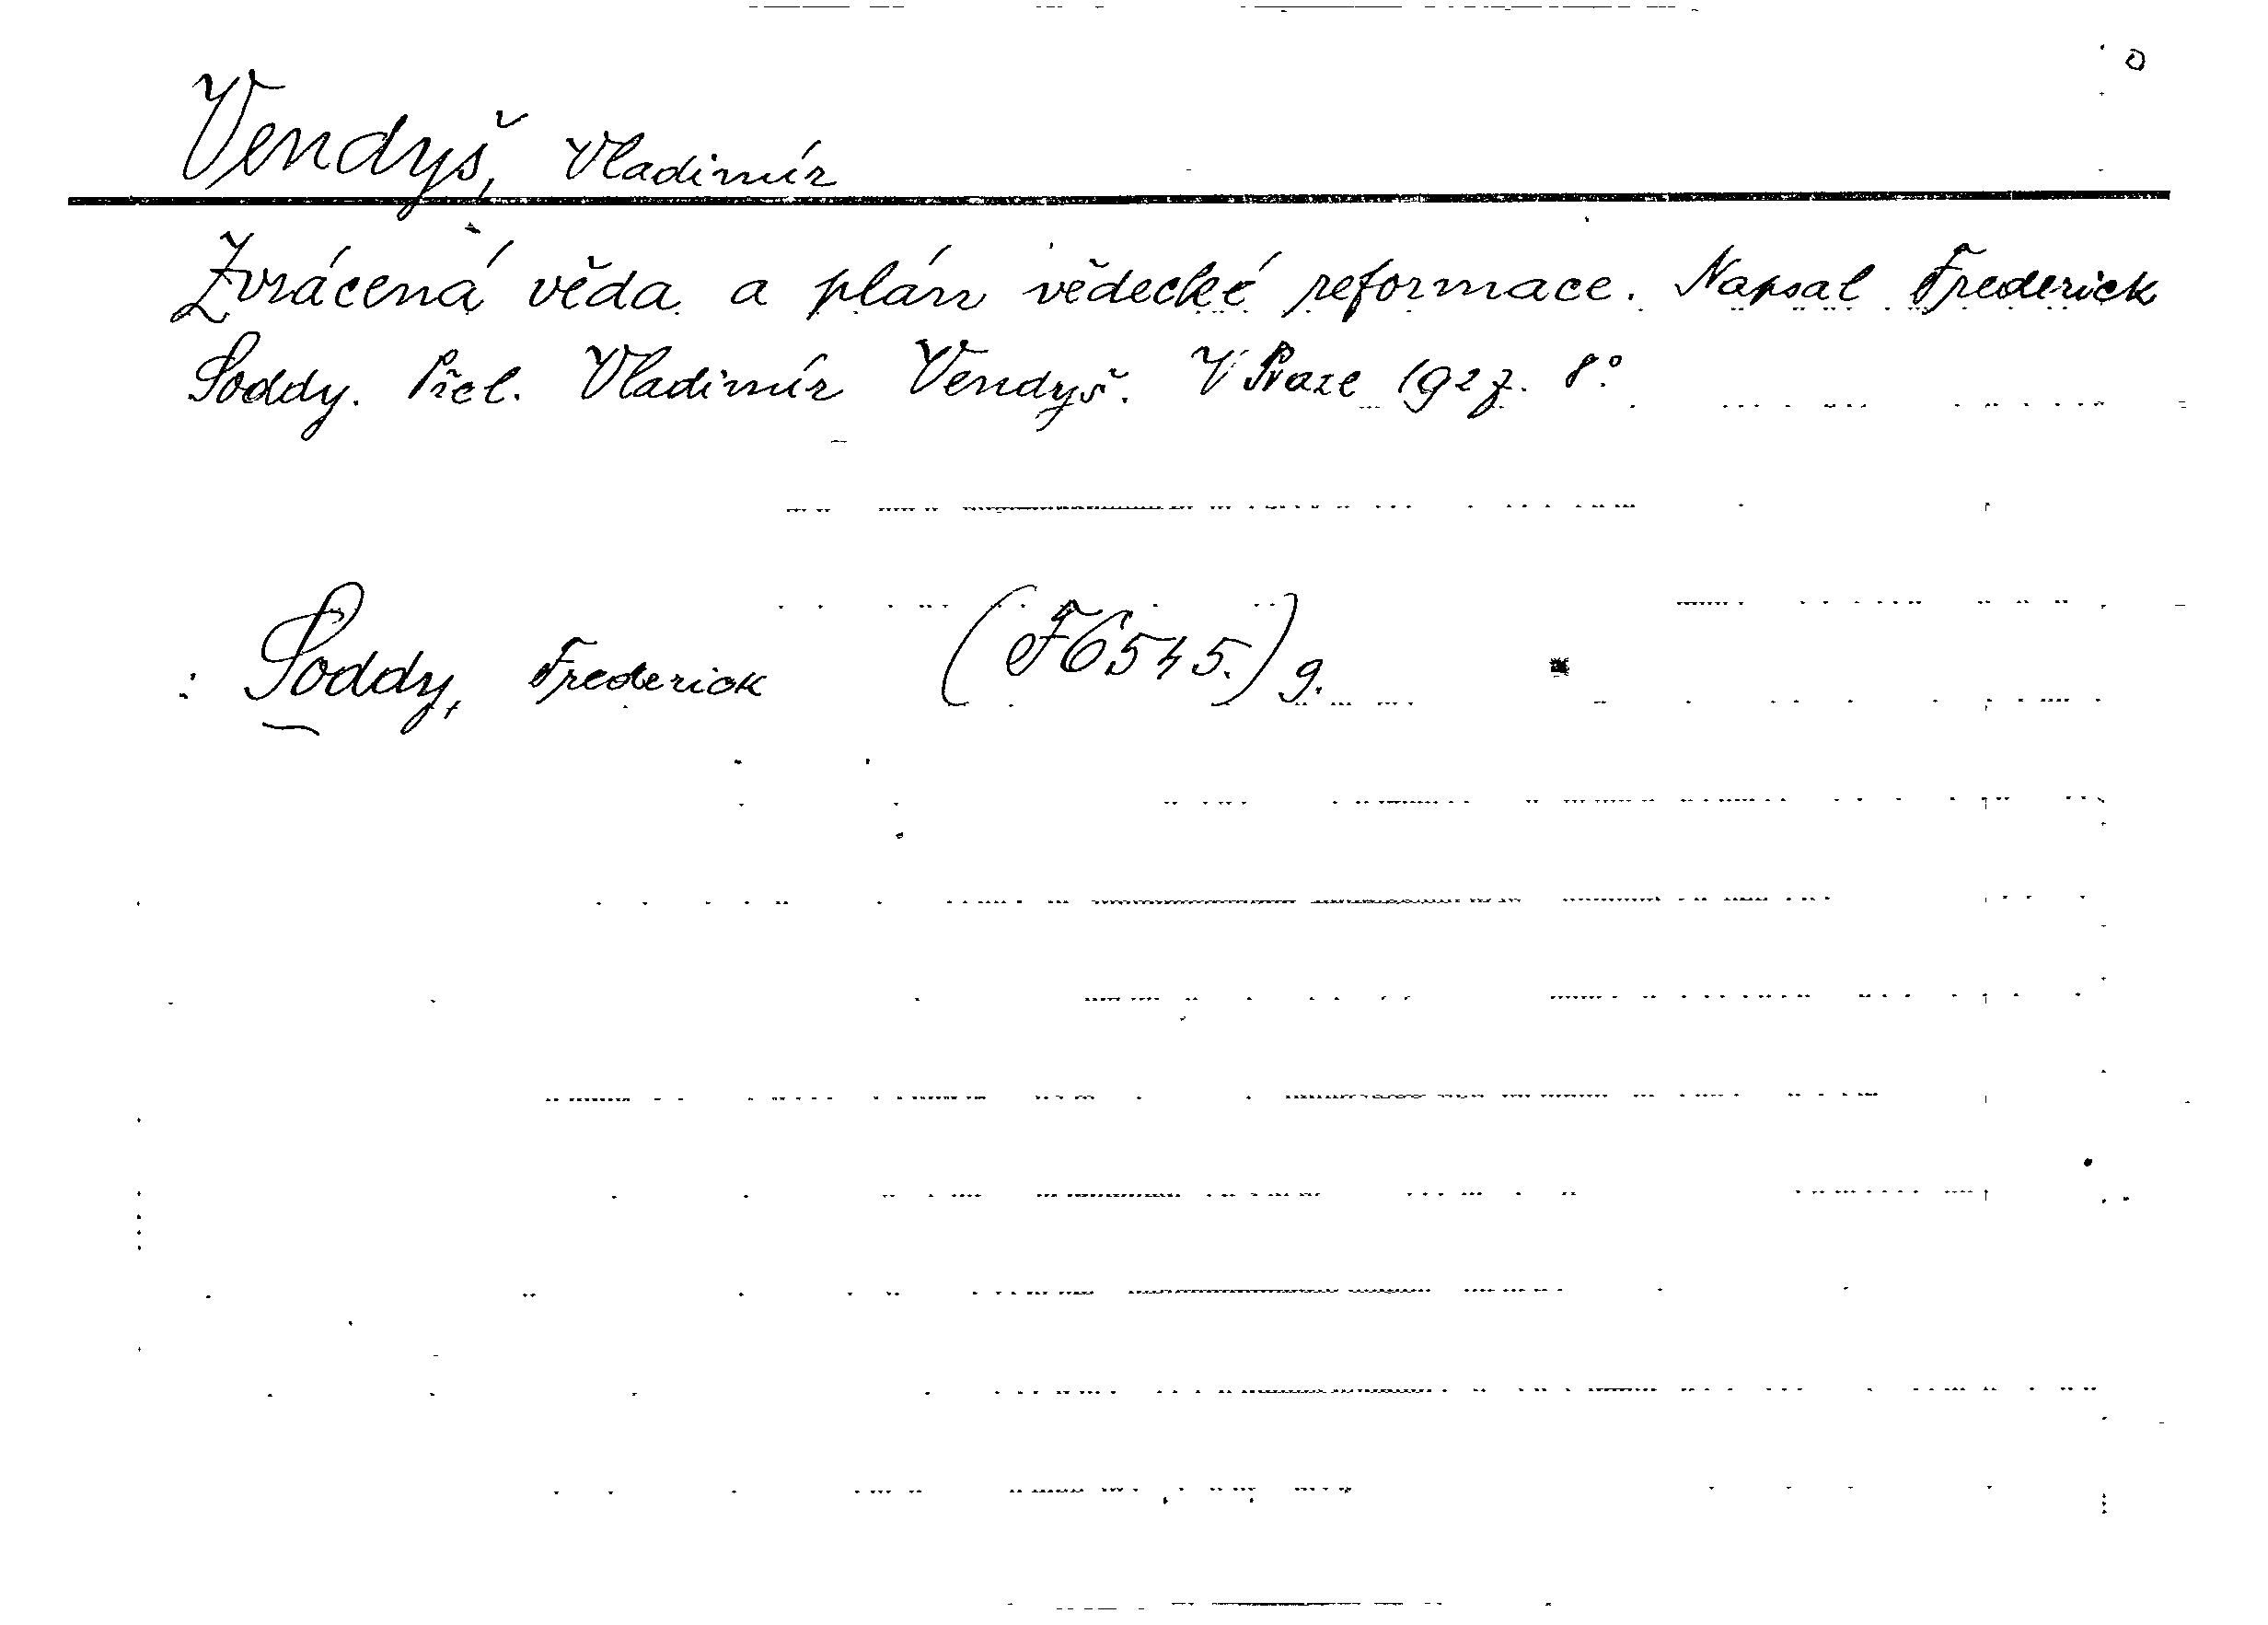 Vendyš, Vladimír
Zvrácená věda a plán vědecké reformace. Napsal Frederick
Soddy. Přel. Vladimír Vendyš. V Praze 1927. 8°.
: Soddy, Frederick (F6545.) g.